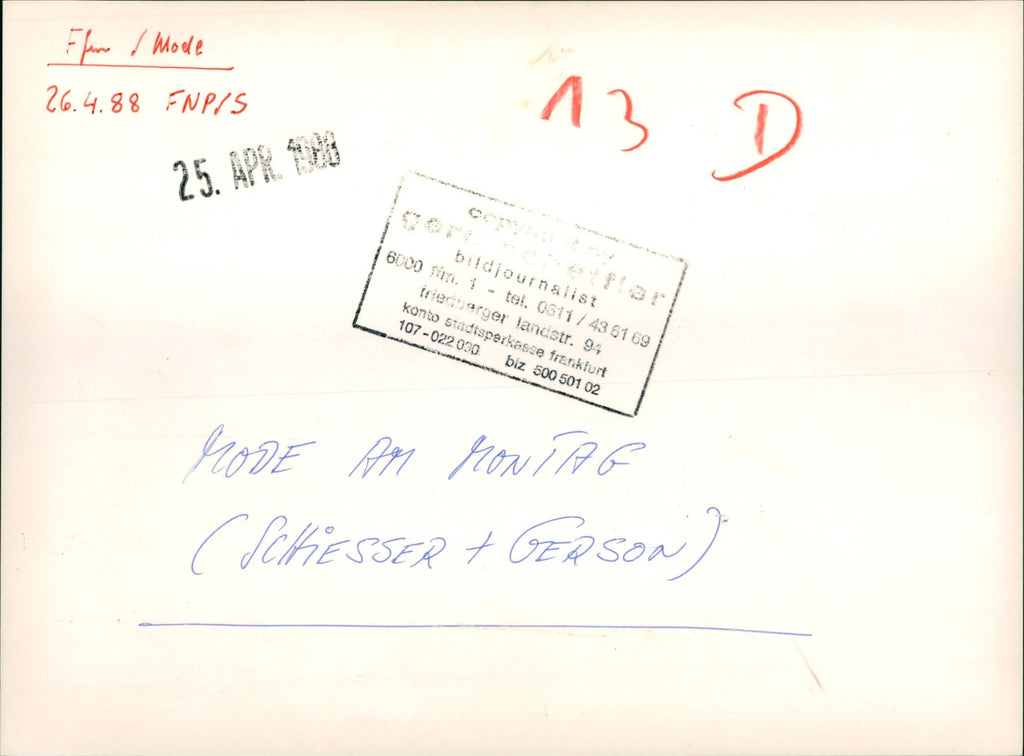 Ffm / Mode
26.4.88 FNP/S
13 D
25. APR. 1988
copyright by
gerd scheffler
bildjournalist
6000 ffm. 1 - tel. 0611 / 43 61 69
friedberger landstr. 94
konto stadtsparkasse frankfurt
107-022 030 blz 500 501 02
MODE AM MONTAG
(SCHIESSER + GERSON)